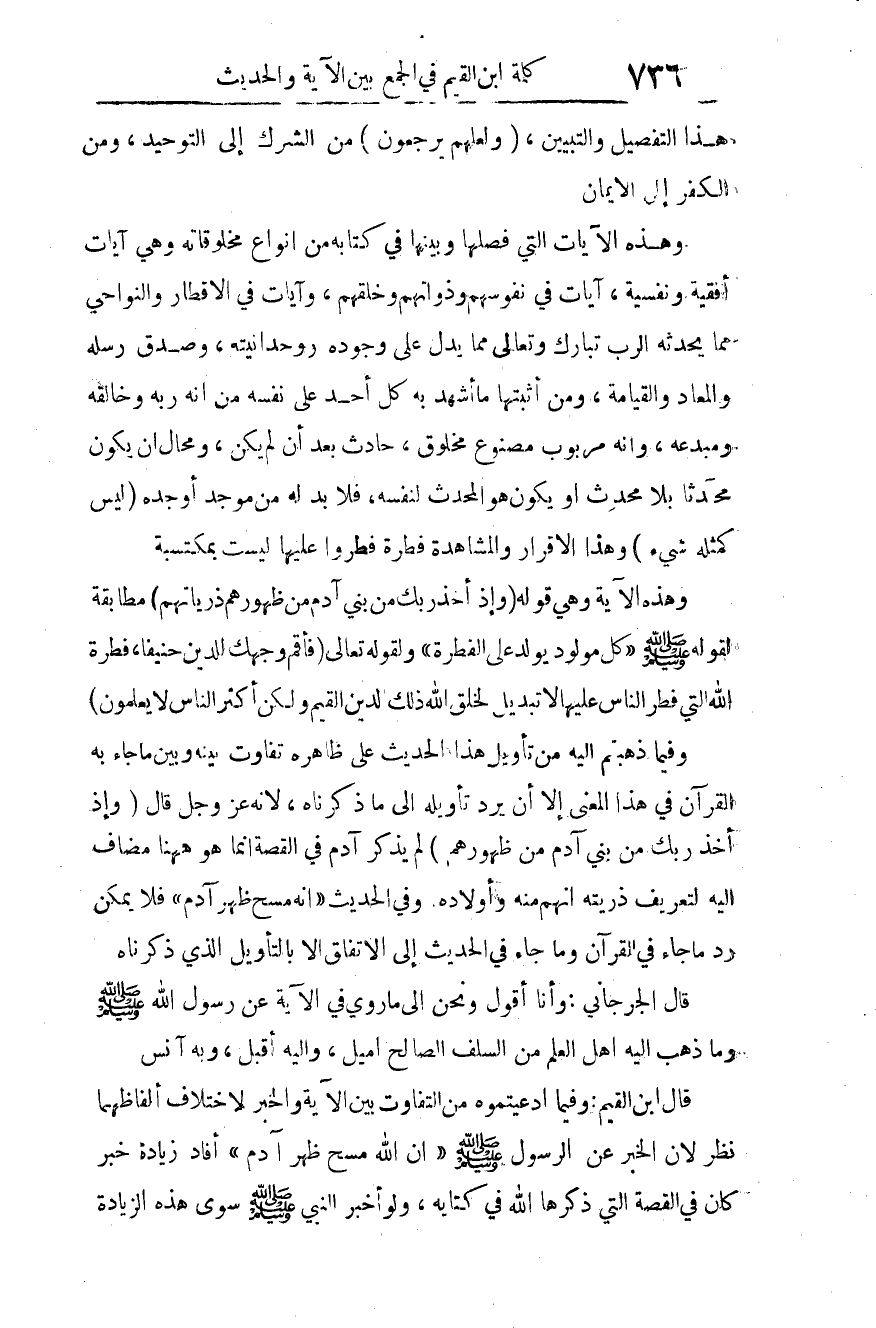 ٧٣٦ كلمة ابن القيم في الجمع بين الآية والحديث
هـذا التفصيل والتبيين ، ( ولعلهم يرجعون ) من الشرك إلى التوحيد ، ومن
الكفر إلى الايمان
وهـذه الآيات التي فصلها وبينها في كتابه من انواع مخلوقاته وهي آيات
أفقية ونفسية ، آيات في نفوسهم وذواتهم وخلقهم ، وآيات في الاقطار والنواحي
مما يحدثه الرب تبارك وتعالى مما يدل على وجوده ووحدانيته ، وصـدق رسله
والمعاد والقيامة ، ومن أثبتها ما أشهد به كل أحـد على نفسه من انه ربه وخالقه
ومبدعه ، وانه مربوب مصنوع مخلوق ، حادث بعد أن لم يكن ، ومحال ان يكون
محدَثا بلا محدِث او يكون هو المحدث لنفسه، فلا بد له من موجد أوجده (ليس
كمثله شيء ) وهذا الاقرار والمشاهدة فطرة فطروا عليها ليست بمكتسبة
وهذه الآية وهي قوله (وإذ أخذ ربك من بني آدم من ظهورهم ذرياتهم) مطابقة
لقوله ﷺ «كل مولود يولد على الفطرة» ولقوله تعالى (فأقم وجهك للدين حنيفا، فطرة
الله التي فطر الناس عليها لا تبديل لخلق الله ذلك الدين القيم ولكن أكثر الناس لا يعلمون)
وفيما ذهبتم اليه من تأويل هذا الحديث على ظاهره تفاوت بينه وبين ما جاء به
القرآن في هذا المعنى إلا أن يرد تأويله الى ما ذكرناه ، لانه عز وجل قال ( وإذ
أخذ ربك من بني آدم من ظهورهم ) لم يذكر آدم في القصة انما هو ههنا مضاف
اليه لتعريف ذريته انهم منه وأولاده. وفي الحديث «انه مسح ظهر آدم» فلا يمكن
رد ما جاء في القرآن وما جاء في الحديث إلى الاتفاق الا بالتأويل الذي ذكرناه
قال الجرجاني : وأنا أقول ونحن الى ما روي في الآية عن رسول الله ﷺ
وما ذهب اليه اهل العلم من السلف الصالح اميل ، واليه أقبل ، وبه آنس
قال ابن القيم: وفيما ادعيتموه من التفاوت بين الآية والخبر لاختلاف ألفاظهما
نظر لان الخبر عن الرسول ﷺ « ان الله مسح ظهر آدم » أفاد زيادة خبر
كان في القصة التي ذكرها الله في كتابه ، ولو أخبر النبي ﷺ سوى هذه الزيادة